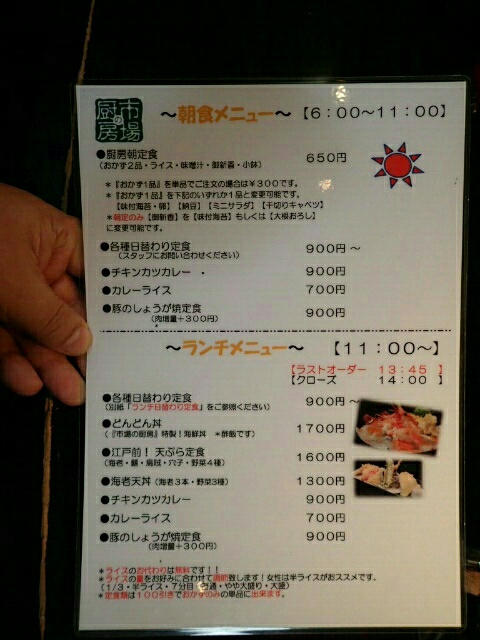 市場の厨房
～朝食メニュー～ 【６：００～１１：００】
●厨房朝定食 ６５０円
(おかず２品・ライス・味噌汁・御新香・小鉢)
＊『おかず１品』を単品でご注文の場合は￥３００です。
＊『おかず１品』を下記のいずれか１品と変更可能です。
【味付海苔・卵】【納豆】【ミニサラダ】【千切りキャベツ】
＊朝定のみ【御新香】を【味付海苔】もしくは【大根おろし】
に変更可能です。
●各種日替わり定食 ９００円～
(スタッフにお問い合わせください)
●チキンカツカレー ・ ９００円
●カレーライス ７００円
●豚のしょうが焼定食 ９００円
(肉増量＋３００円)
～ランチメニュー～ 【１１：００～】
【ラストオーダー １３：４５ 】
【クローズ １４：００ 】
●各種日替わり定食 ９００円～
(別紙「ランチ日替わり定食」をご参照ください)
●どんどん丼 １７００円
(『市場の厨房』特製！海鮮丼 ＊酢飯です)
●江戸前！天ぷら定食 １６００円
(海老・鱚・烏賊・穴子・野菜４種)
●海老天丼(海老３本・野菜３種) １３００円
●チキンカツカレー ９００円
●カレーライス ７００円
●豚のしょうが焼定食 ９００円
(肉増量＋３００円)
＊ライスのお代わりは無料です！！
＊ライスの量をお好みに合わせて調節致します！女性は半ライスがおススメです。
(１/３・半ライス・７分目・普通・やや大盛り・大盛)
＊定食類は１００引きでおかずのみの単品に出来ます。